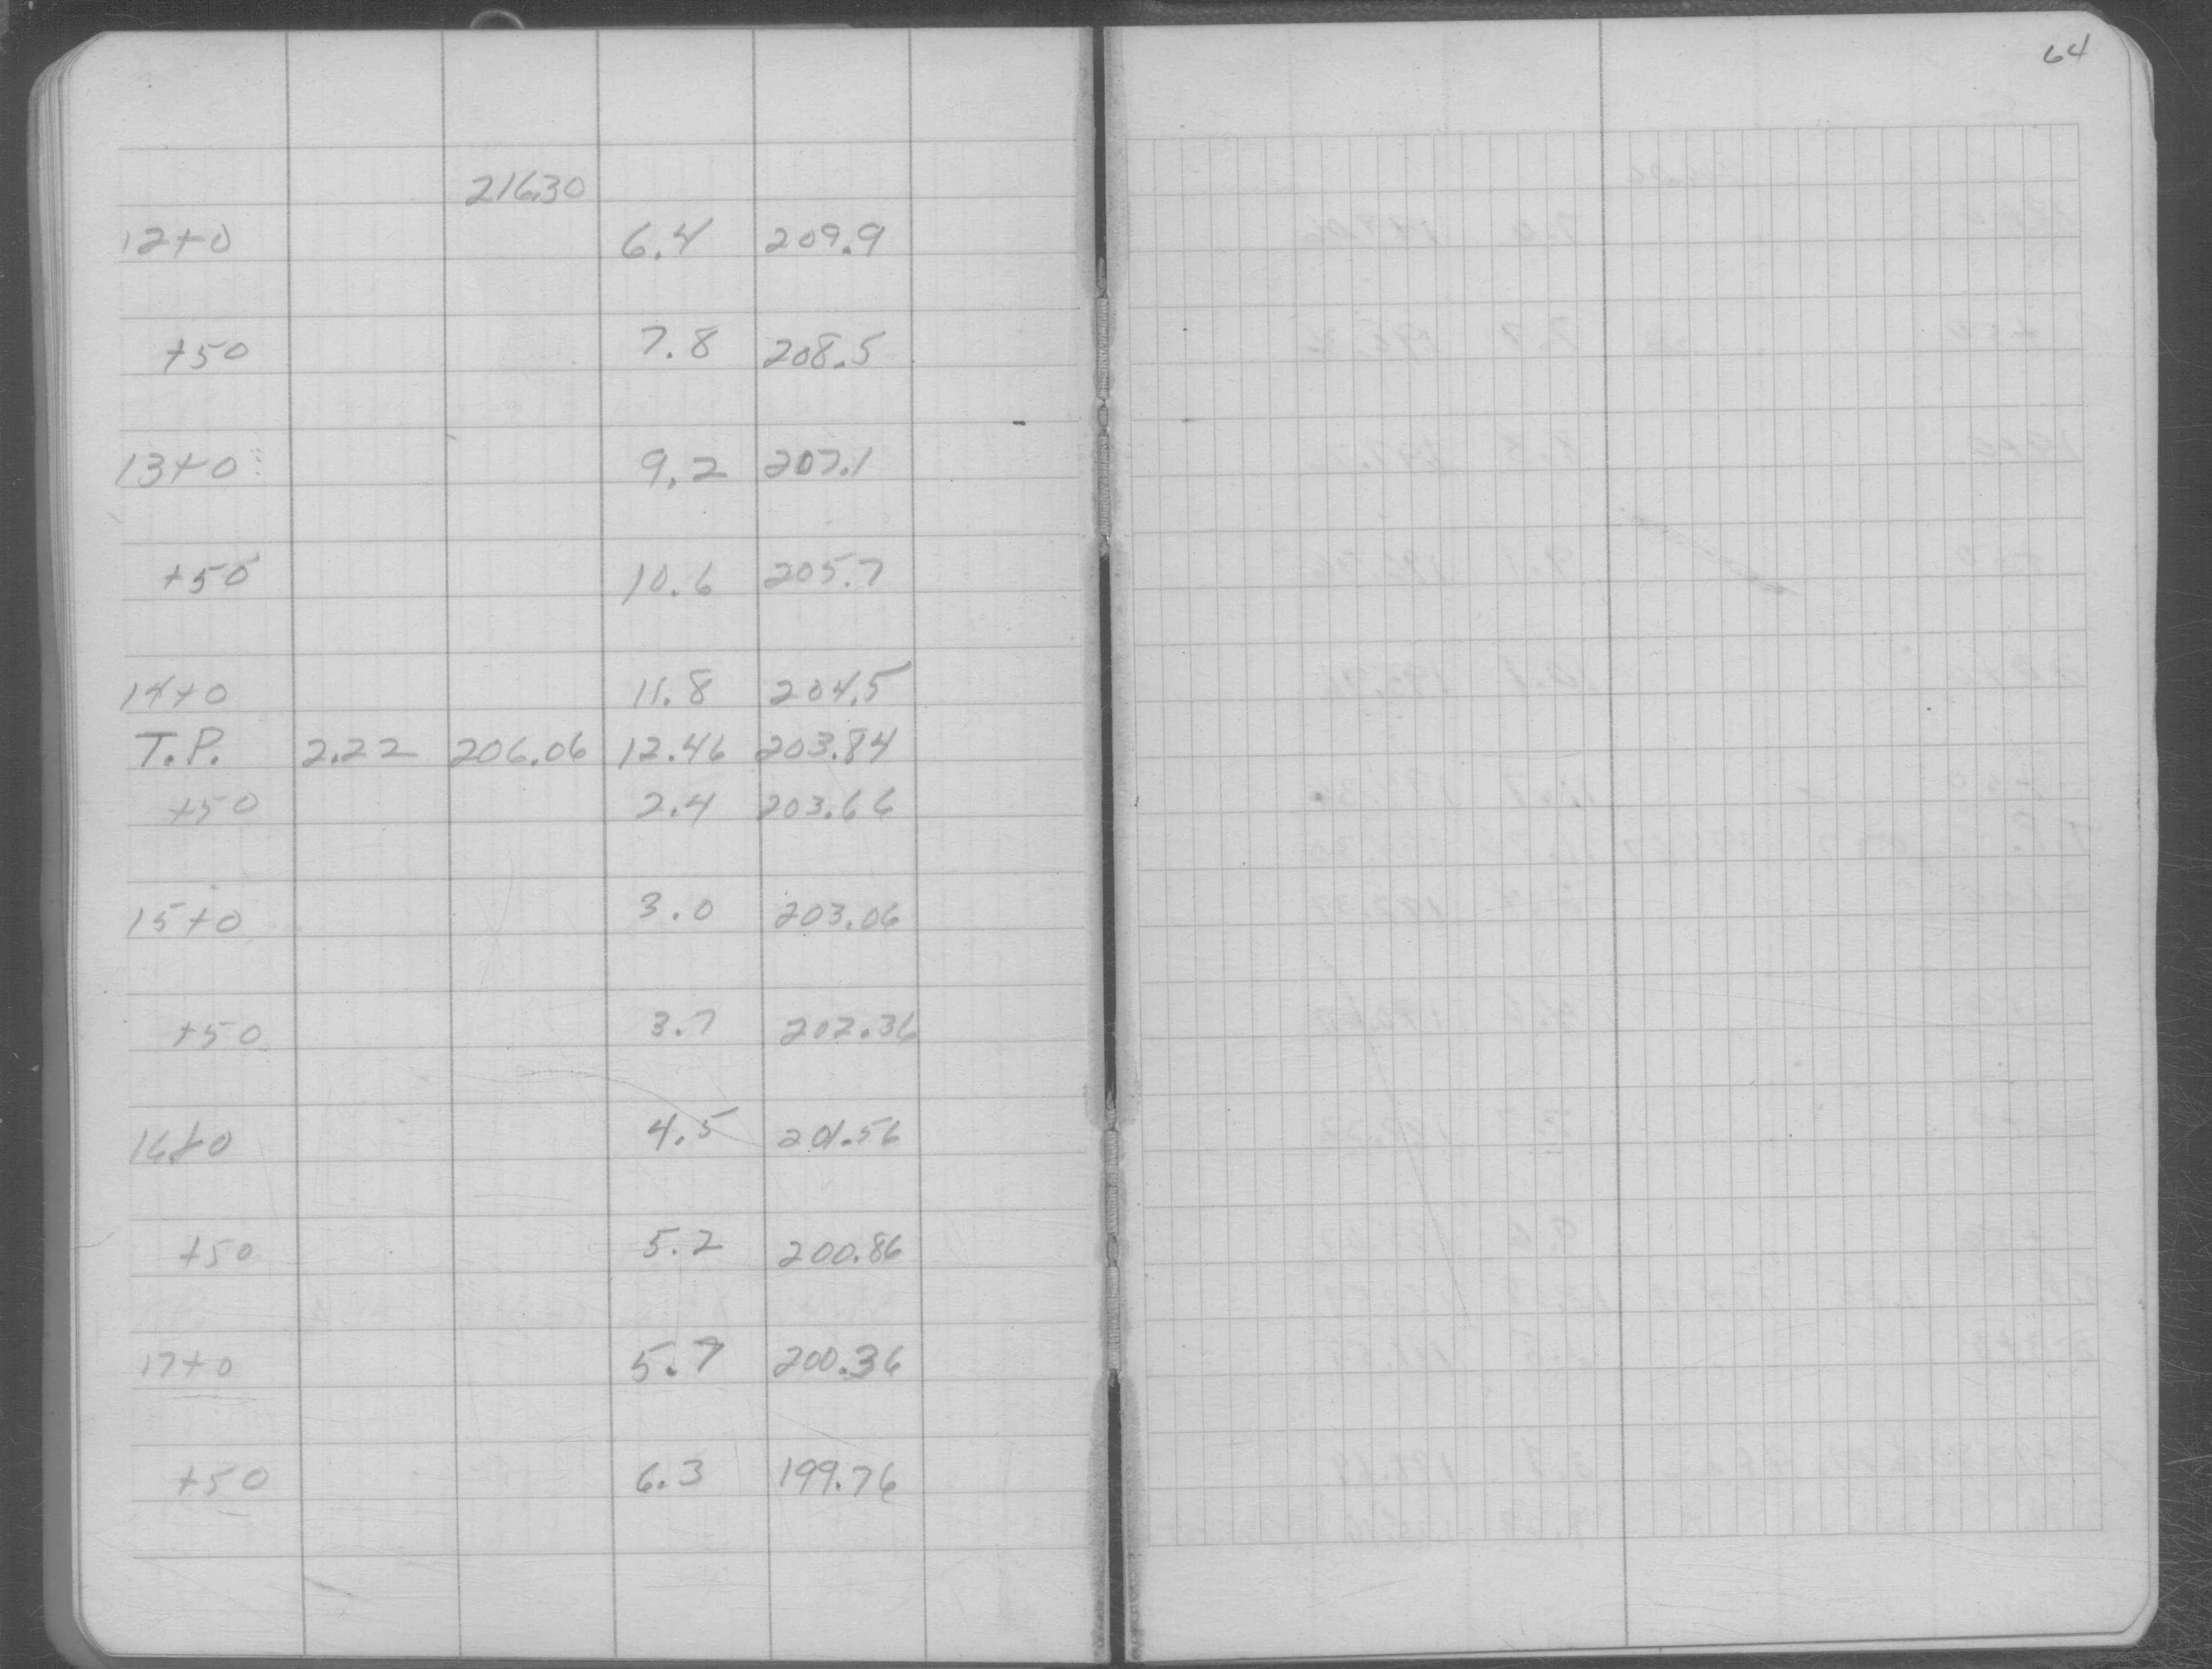 64
216.30
12+0 6.4 209.9
+50 7.8 208.5
13+0 9.2 207.1
+50 10.6 205.7
14+0 11.8 204.5
T.P. 2.22 206.06 12.46 203.84
+50 2.4 203.66
15+0 3.0 203.06
+50 3.7 202.36
16+0 4.5 201.56
+50 5.2 200.86
17+0 5.7 200.36
+50 6.3 199.76